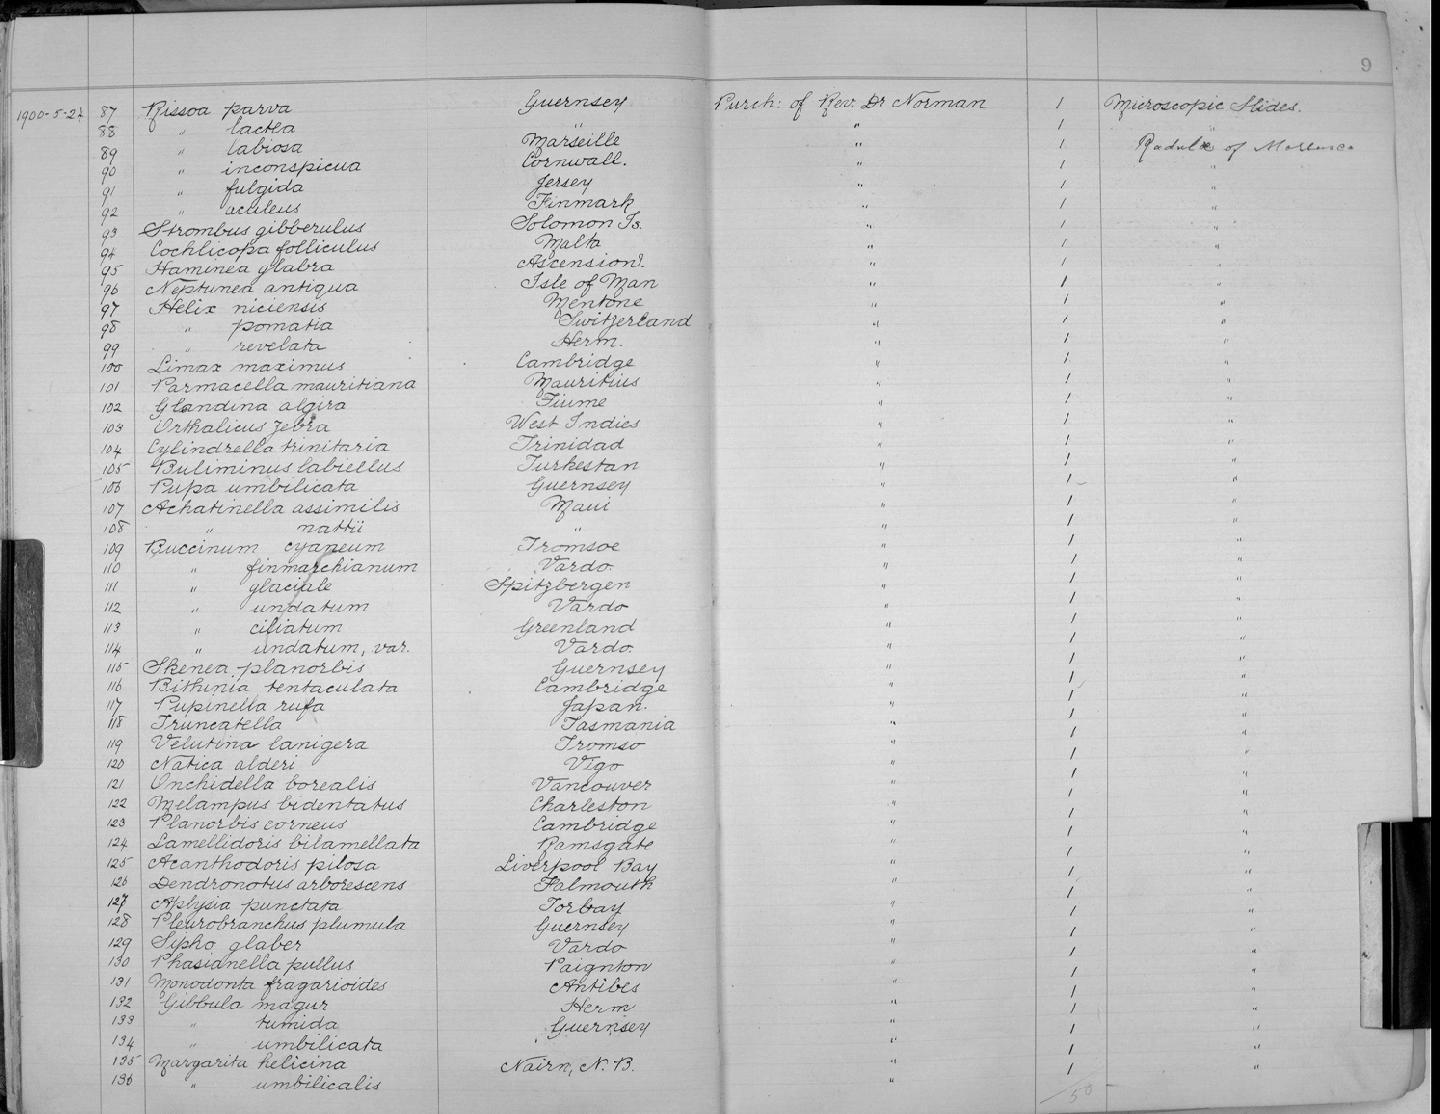 9
1900-5-24 87 Rissoa parva Guernsey Purch: of Rev. Dr Norman 1 Microscopic Slides.
88 " lactea " " 1 "
89 " labiosa Marseille " 1 Radulæ of Mollusca
90 " inconspicua Cornwall. " 1 "
91 " fulgida Jersey " 1 "
92 " aculeus Finmark " 1 "
93 Strombus gibberulus Solomon Is. " 1 "
94 Cochlicopa folliculus Malta " 1 "
95 Haminea glabra Ascension I. " 1 "
96 Neptunea antiqua Isle of Man " 1 "
97 Helix niciensis Mentone " 1 "
98 " pomatia Switzerland " 1 "
99 " revelata Herm. " 1 "
100 Limax maximus Cambridge " 1 "
101 Parmacella mauritiana Mauritius " 1 "
102 Glandina algira Fiume " 1 "
103 Orthalicus zebra West Indies " 1 "
104 Cylindrella trinitaria Trinidad " 1 "
105 Buliminus labiellus Turkestan " 1 "
106 Pupa umbilicata Guernsey " 1 "
107 Achatinella assimilis Maui " 1 "
108 " nattii " " 1 "
109 Buccinum cyaneum Tromsoe " 1 "
110 " finmarchianum Vardo " 1 "
111 " glaciale Spitzbergen " 1 "
112 " undatum Vardo " 1 "
113 " ciliatum Greenland " 1 "
114 " undatum, var. Vardo " 1 "
115 Skenea planorbis Guernsey " 1 "
116 Bithinia tentaculata Cambridge " 1 "
117 Pupinella rufa Japan. " 1 "
118 Truncatella Tasmania " 1 "
119 Velutina lanigera Tromso " 1 "
120 Natica alderi Vigo " 1 "
121 Onchidella borealis Vancouver " 1 "
122 Melampus bidentatus Charleston " 1 "
123 Planorbis corneus Cambridge " 1 "
124 Lamellidoris bilamellata Ramsgate " 1 "
125 Acanthodoris pilosa Liverpool Bay " 1 "
126 Dendronotus arborescens Falmouth " 1 "
127 Aplysia punctata Torbay " 1 "
128 Pleurobranchus plumula Guernsey " 1 "
129 Sipho glaber Vardo " 1 "
130 Phasianella pullus Paignton " 1 "
131 Monodonta fragarioides Antibes " 1 "
132 Gibbula magus Herm " 1 "
133 " tumida Guernsey " 1 "
134 " umbilicata " 1 "
135 Margarita helicina Nairn, N.B. " 1 "
136 " umbilicalis "
50